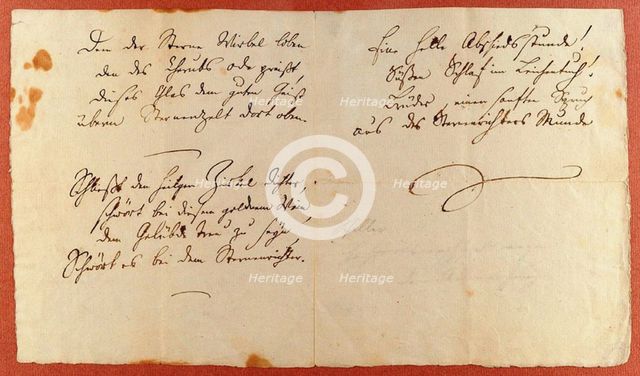 Den der Sterne Wirbel loben
den des Seraphs Ode preißt,
dieses Glas dem guten Geist
überm Sternenzelt dort oben.
Schließt den heilgen Zirkel dichter,
schwört bei diesem goldnen Wein
dem Gelübde treu zu seyn,
Schwört es bei dem Sternenrichter.
Eine heitre Abschiedsstunde!
Süßen Schlaf im Leichentuch!
Brüder, einen sanften Spruch
aus des Sternenrichters Munde
Heritage
Heritage
Heritage
Heritage
Heritage
Heritage
Heritage
Heritage
Heritage